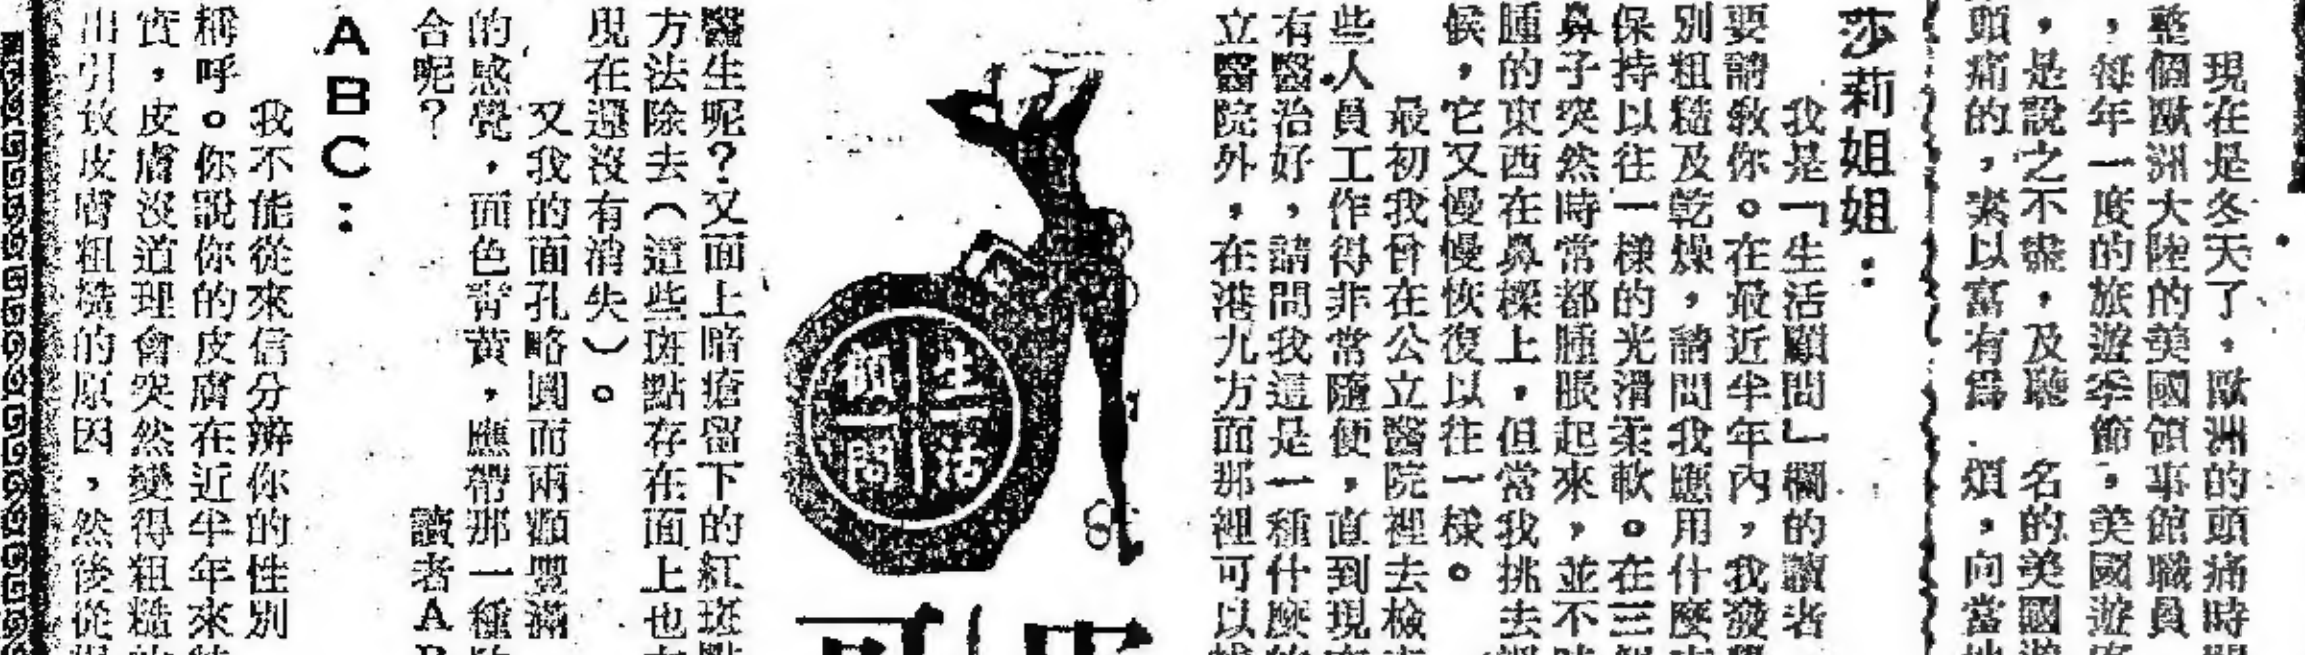 現在是冬天了,歐洲的頭痛時
整個歐洲大陸的美國領事館職員
,每年一度的旅遊季節,美國遊
,是說之不盡,及聽 名的美國遊
頭痛的,素以富有為 煩,向當地
莎莉姐姐:
我是「生活顧問」欄的讀者
要請教你。在最近半年內,我發覺
別粗糙及乾燥,請問我應用什麼
保持以往一樣的光滑柔軟。在三個
鼻子突然時常都腫脹起來,並不
腫的東西在鼻樑上,但當我挑去
候,它又慢慢恢復以往一樣。
最初我曾在公立醫院裡去檢
些人員工作得非常隨便,直到現在
有醫治好,請問我這是一種什麼的
立醫院外,在港九方面那裡可以
生活
顧問
醫生呢?又面上暗瘡留下的紅斑點
方法除去(這些斑點存在面上也
現在還沒有消失)。
又我的面孔略圓而兩頰豐滿
的感覺,面色青黃,應帶那一種
合呢?
讀者AB
ABC:
我不能從來信分辨你的性別
稱呼。你說你的皮膚在近半年來
實,皮膚沒道理會突然變得粗糙的
出引致皮膚粗糙的原因,然後從